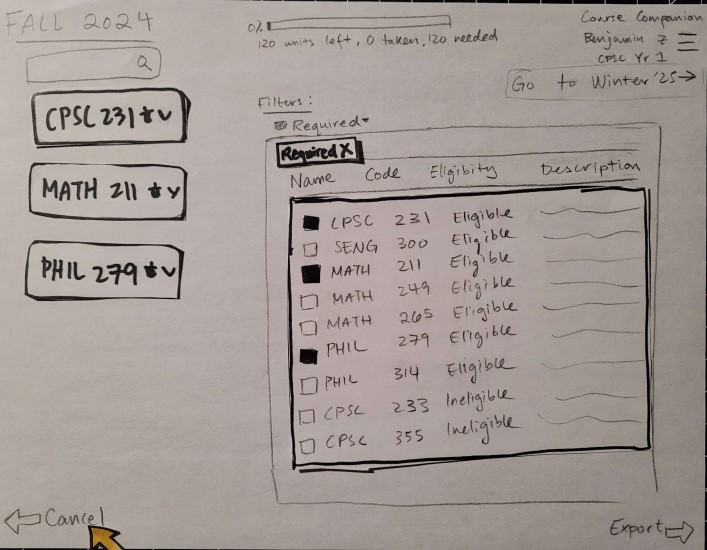 FALL 2024
CPSC 231 * v
MATH 211 * v
PHIL 279 * v
0%
120 units left, 0 taken, 120 needed
Course Companion
Benjamin Z
CPSC Yr 1
Go to Winter '25→
Filters:
Required
Required X
Name Code Eligibity Description
CPSC 231 Eligible
SENG 300 Eligible
MATH 211 Eligible
MATH 249 Eligible
MATH 265 Eligible
PHIL 279 Eligible
PHIL 314 Eligible
CPSC 233 Ineligible
CPSC 355 Ineligible
Cancel
Export